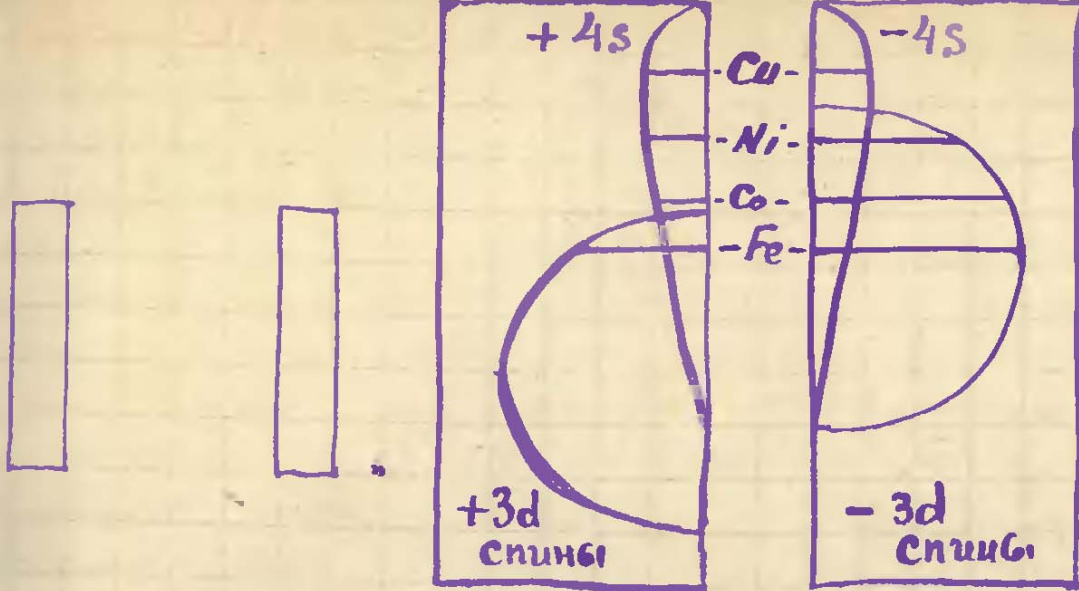 + 4s
- 4s
- Cu -
- Ni -
- Co -
- Fe -
+3d
спины
- 3d
спины